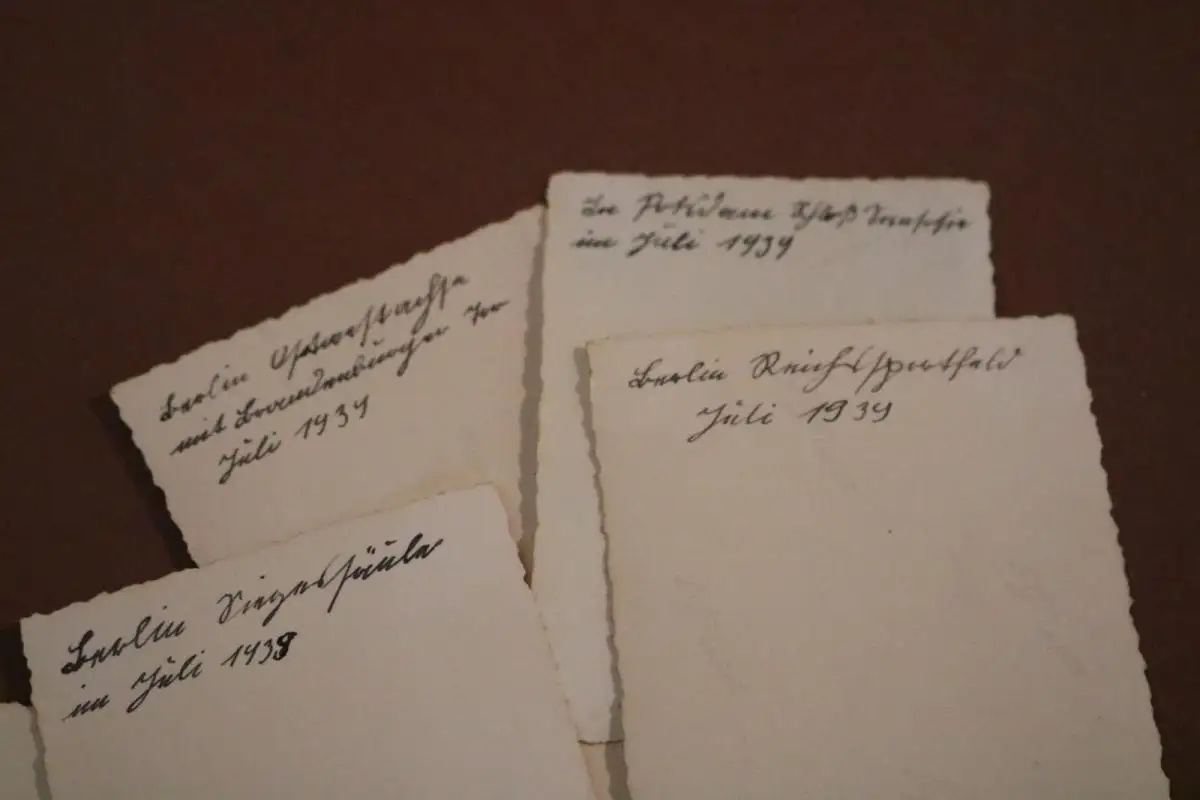 Berlin Ostwestachse
mit Brandenburger Tor
Juli 1939
In Potsdam Schloß
im Juli 1939
Berlin Reichssportfeld
Juli 1939
Berlin Siegessäule
im Juli 1939